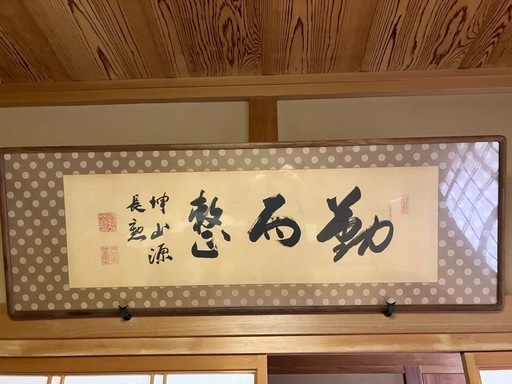 勤而整
坤山源
長勲